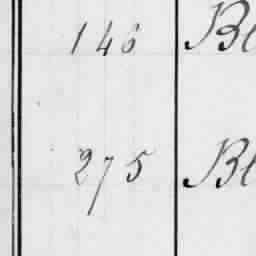 146 Bl
275 Bl